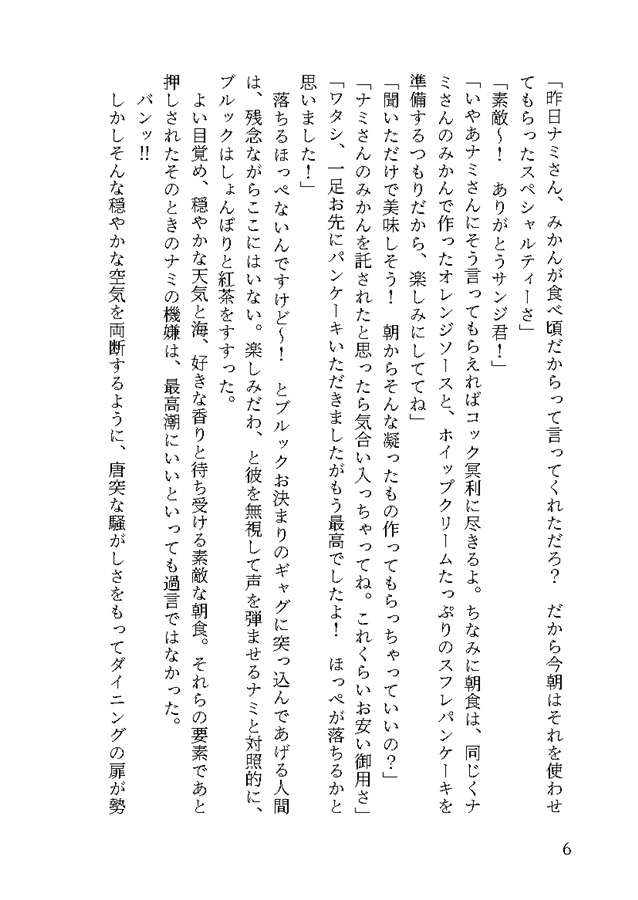 「昨日ナミさん、みかんが食べ頃だからって言ってくれただろ？　だから今朝はそれを使わせ
てもらったスペシャルティーさ」
「素敵〜！　ありがとうサンジ君！」
「いやあナミさんにそう言ってもらえればコック冥利に尽きるよ。ちなみに朝食は、同じくナ
ミさんのみかんで作ったオレンジソースと、ホイップクリームたっぷりのスフレパンケーキを
準備するつもりだから、楽しみにしててね」
「聞いただけで美味しそう！　朝からそんな凝ったもの作ってもらっちゃっていいの？」
「ナミさんのみかんを託されたと思ったら気合い入っちゃってね。これくらいお安い御用さ」
「ワタシ、一足お先にパンケーキいただきましたがもう最高でしたよ！　ほっぺが落ちるかと
思いました！」
　落ちるほっぺないんですけど〜！　とブルックお決まりのギャグに突っ込んであげる人間
は、残念ながらここにはいない。楽しみだわ、と彼を無視して声を弾ませるナミと対照的に、
ブルックはしょんぼりと紅茶をすすった。
　よい目覚め、穏やかな天気と海、好きな香りと待ち受ける素敵な朝食。それらの要素であと
押しされたそのときのナミの機嫌は、最高潮にいいといっても過言ではなかった。
　バンッ!!
　しかしそんな穏やかな空気を両断するように、唐突な騒がしさをもってダイニングの扉が勢
6